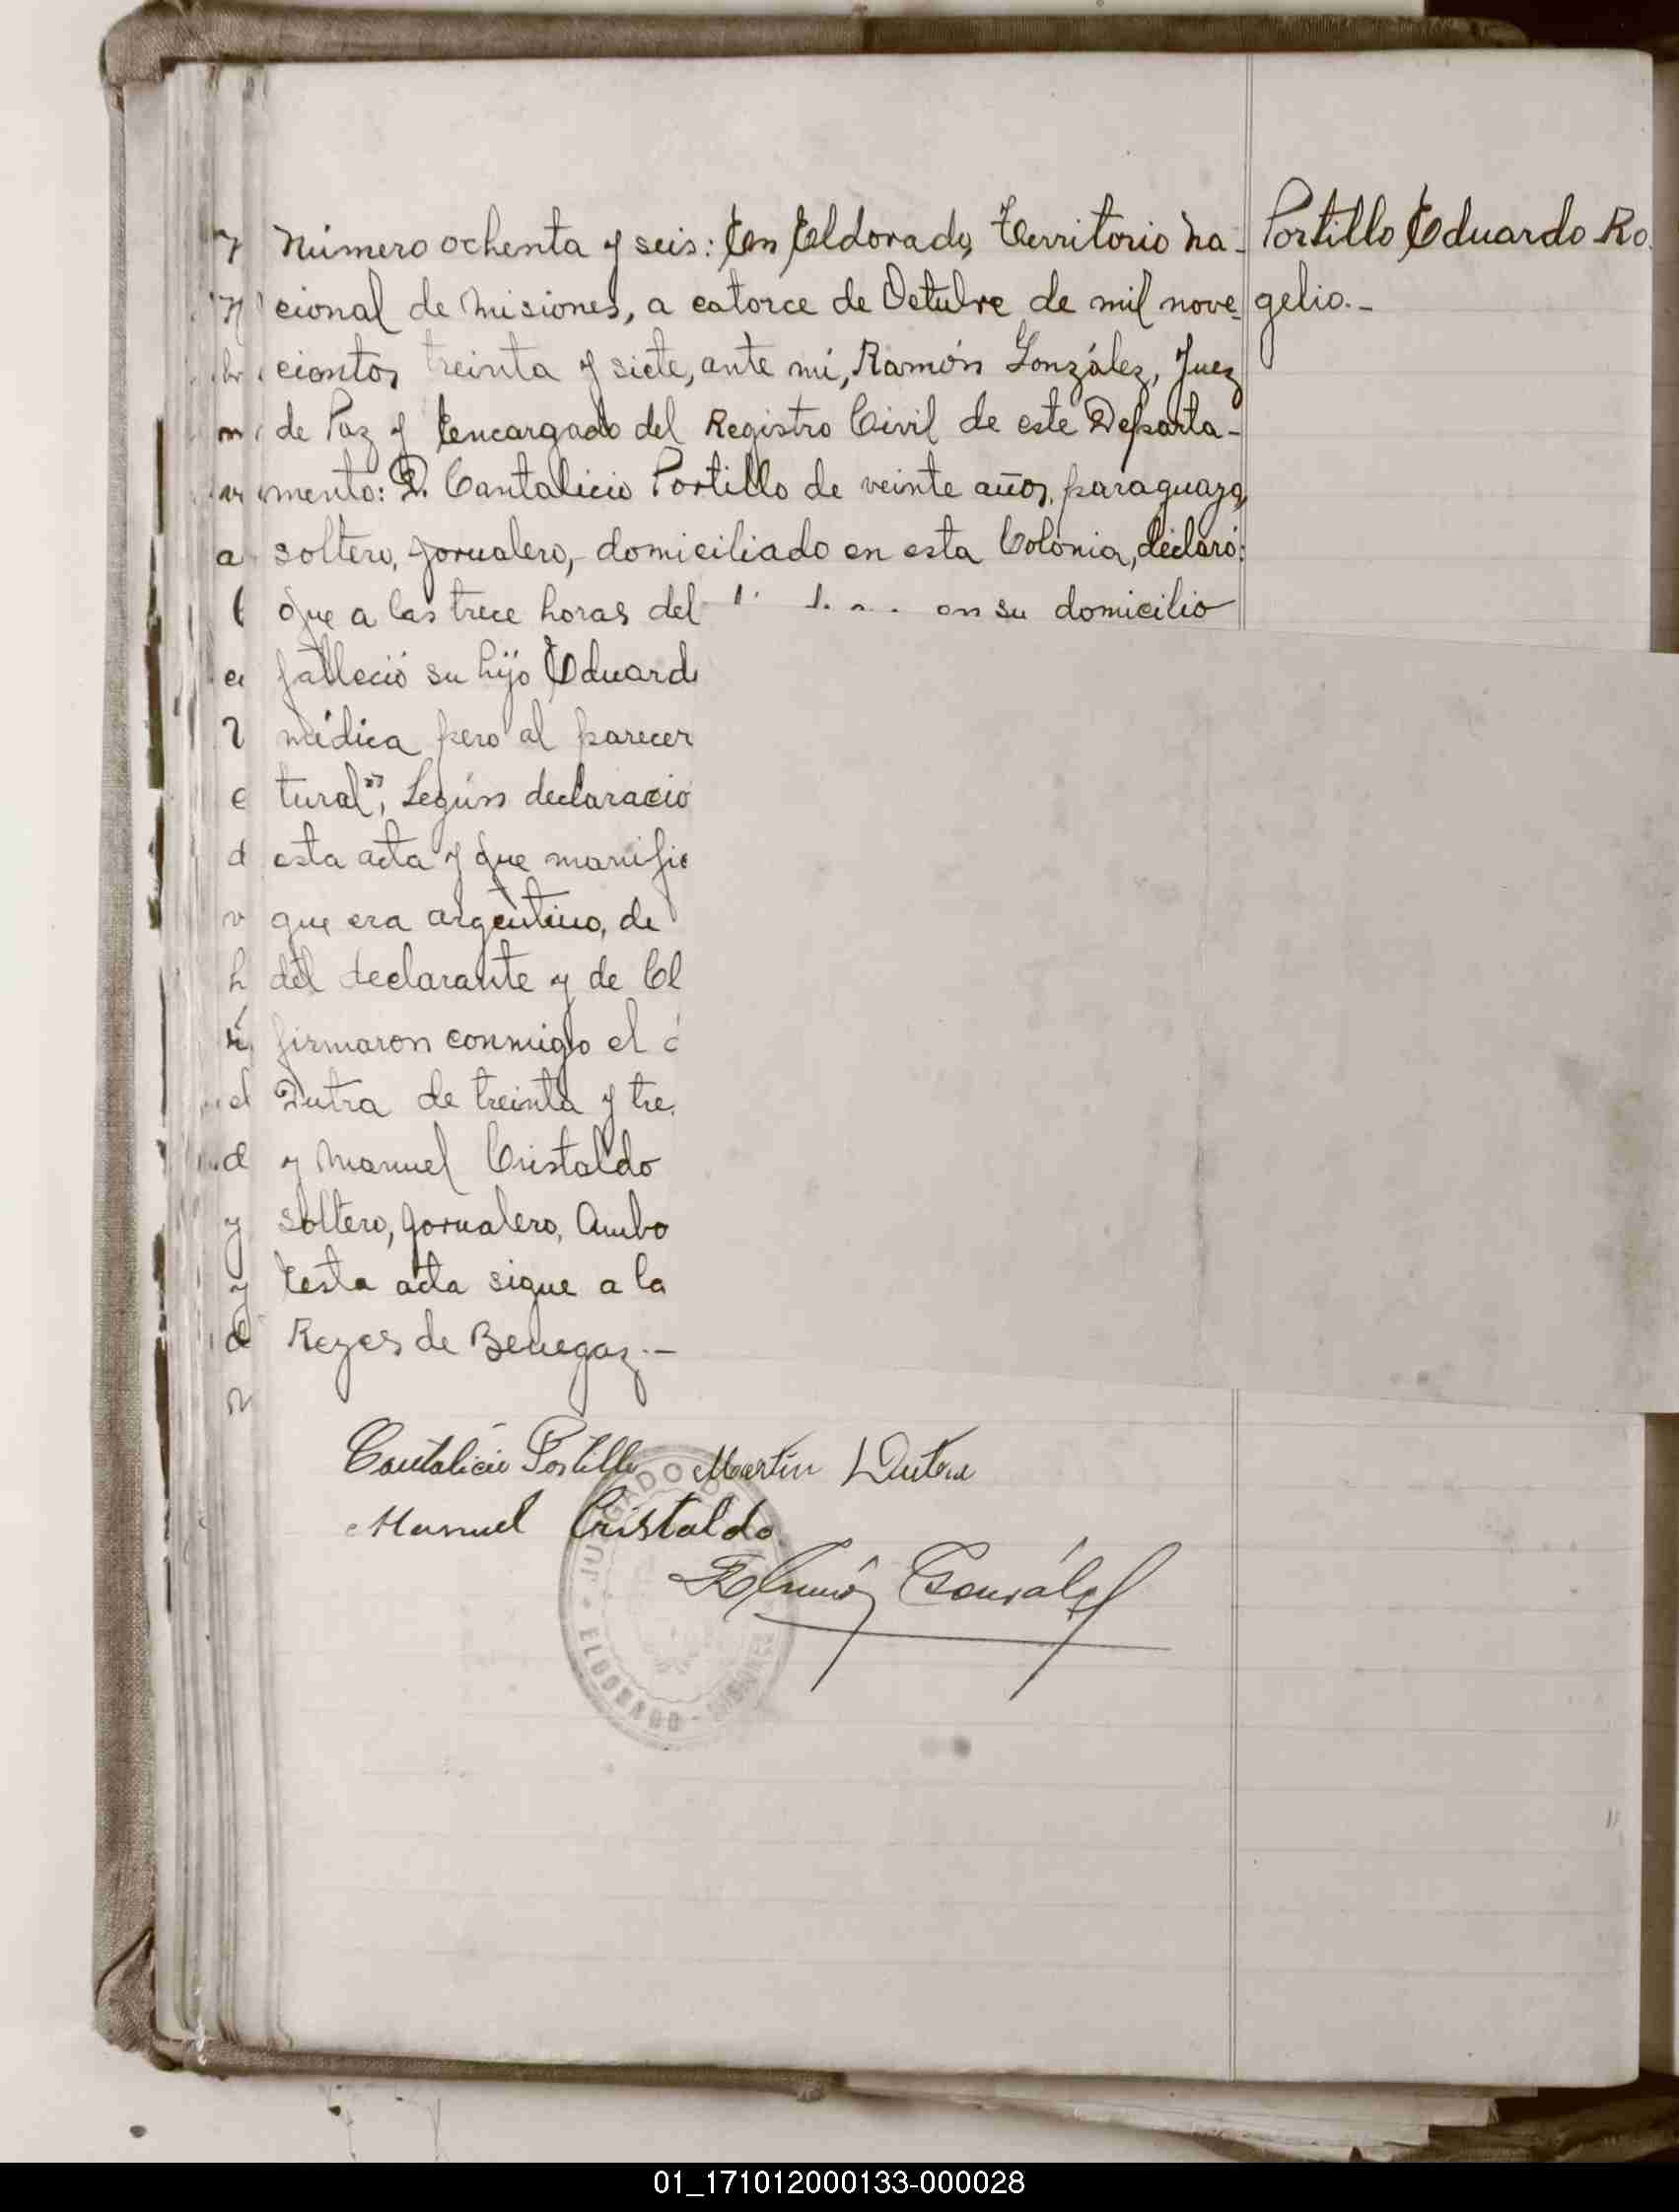 Número ochenta y seis: En Eldorado, Territorio Na-
cional de Misiones, a catorce de Octubre de mil nove-
cientos treinta y siete, ante mí, Ramón González, Juez
de Paz y Encargado del Registro Civil de este Departa-
mento: D. Cantalicio Portillo de veinte años, paraguayo,
soltero, jornalero, domiciliado en esta Colonia, declaró:
Que a las trece horas del en su domicilio
falleció su hijo Eduard
médica pero al parecer
tural", Según declaració
esta acta y que manifie
que era argentino, de
del declarante y de Cl
firmaron conmigo el
Dutra de treinta y tre
y Manuel Cristaldo
soltero, jornalero, Ambo
Esta acta sigue a la
Reyes de Benegaz.-
Portillo Eduardo Ro
gelio.-
Cantalicio Portillo Martín Dutra
Manuel Cristaldo
Ramón González
JUZGADO DE
ELDORADO - MISIONES
01_171012000133-000028